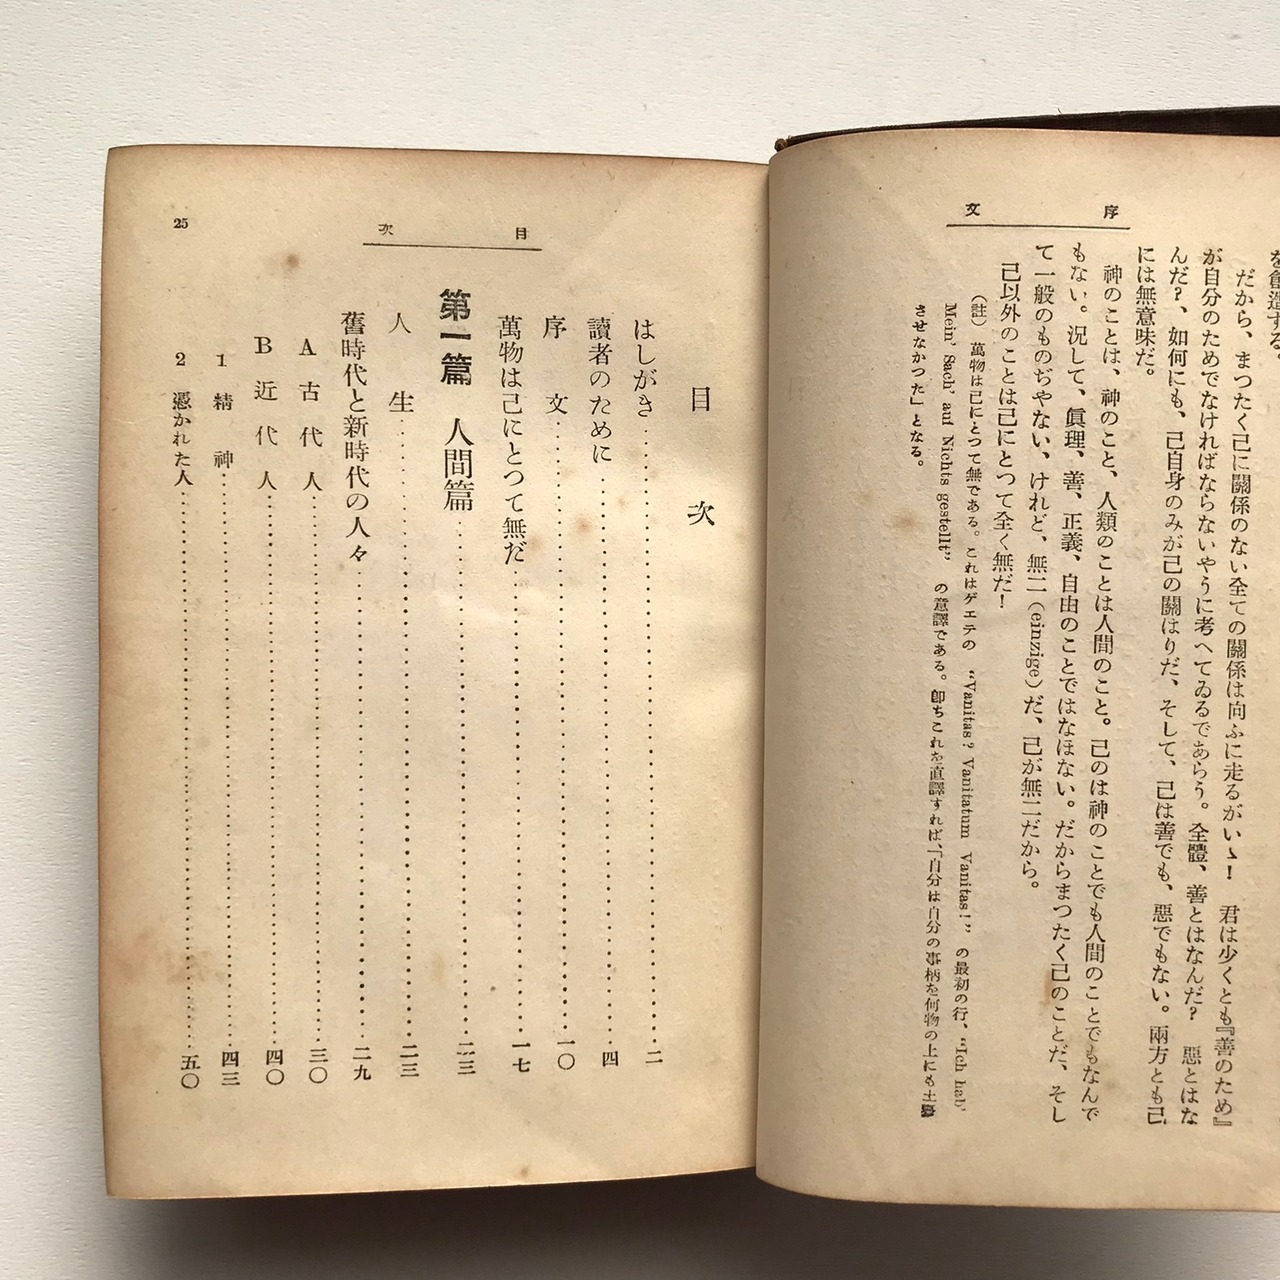 序文
を創造する。
だから、まつたく己に關係のない全ての關係は向ふに走るがいゝ! 君は少くとも『善のため』
が自分のためでなければならないやうに考へてゐるであらう。全體、善とはなんだ? 惡とはな
んだ?、如何にも、己自身のみが己の關はりだ、そして、己は善でも、惡でもない。兩方とも己
には無意味だ。
神のことは、神のこと、人類のことは人間のこと。己のは神のことでも人間のことでもなんで
もない。況して、眞理、善、正義、自由のことではなほない。だからまつたく己のことだ、そし
て一般のものぢやない、けれど、無二(einzige)だ、己が無二だから。
己以外のことは己にとつて全く無だ!
(註) 萬物は己にとつて無である。これはゲエテの “Vanitas? Vanitatum Vanitas!” の最初の行、“Ich hab’
Mein’ Sach’ auf Nichts gestellt” の意譯である。卽ちこれを直譯すれば、「自分は自分の事柄を何物の上にも土臺
させなかつた」となる。
目次
25
目次
はしがき 二
讀者のために 四
序文 一〇
萬物は己にとつて無だ 一七
第一篇 人間篇 二三
人生 二三
舊時代と新時代の人々 二九
A 古代人 三〇
B 近代人 四〇
1 精神 四三
2 憑かれた人 五〇